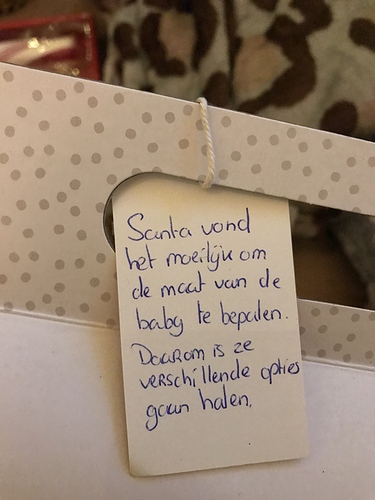 Santa vond
het moeilijk om
de maat van de
baby te bepalen.
Daarom is ze
verschillende opties
gaan halen.